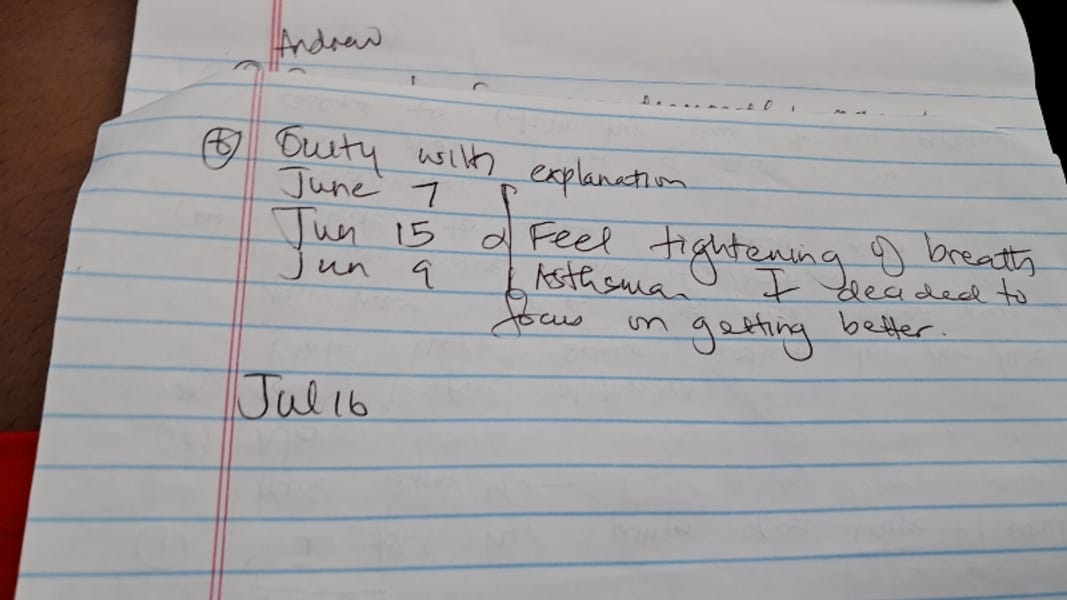 Andrew
⑥ Guilty with explanation
June 7
Jun 15 Feel tightening of breath
Jun 9 Asthsma. I deaded to
focus on getting better.
Jul 16